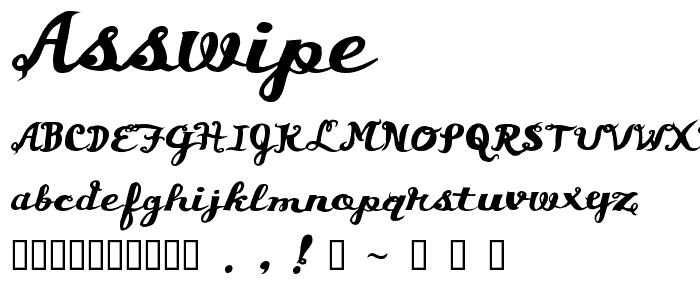 Asswipe
ABCDEFGHIJKLMNOPQRSTUVWX
abcdefghijklmnopqrstuvwxyz
. , ! ~